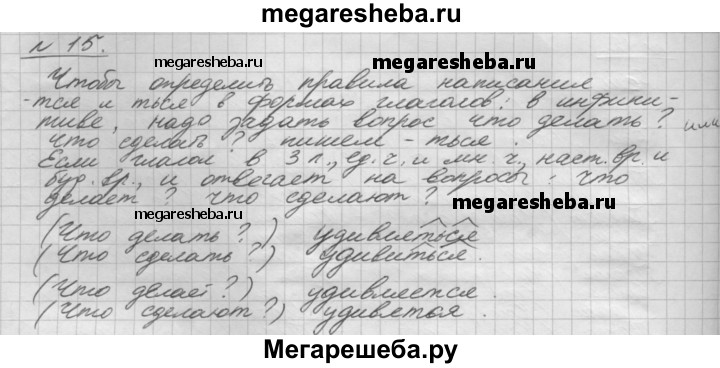 megaresheba.ru
№ 15.
Чтобы определить правила написания
-тся и ться в формах глаголов: в инфини-
тиве, надо задать вопрос что делать? или
что сделать? пишем -ться.
Если глагол в 3 л., ед. ч. и мн. ч., наст. вр. и
буд. вр., и отвечает на вопросы: что
делает? что сделают?
(Что делать?) удивляться
(Что сделать?) удивиться.
(Что делает?) удивляется.
(Что сделают?) удивятся.
megaresheba.ru
megaresheba.ru
megaresheba.ru
megaresheba.ru
Мегарешеба.ру